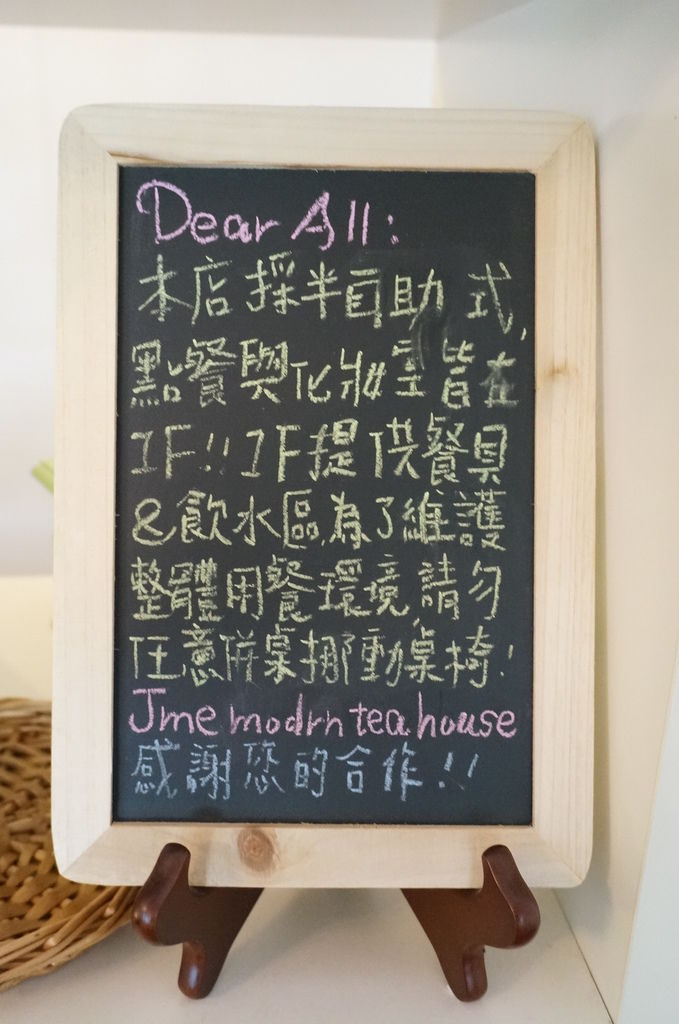 Dear All:
本店採半自助式,
點餐與化妝室皆在
1F!!1F提供餐具
&飲水區,為了維護
整體用餐環境,請勿
任意併桌挪動桌椅!
Jme modrn tea house
感謝您的合作!!